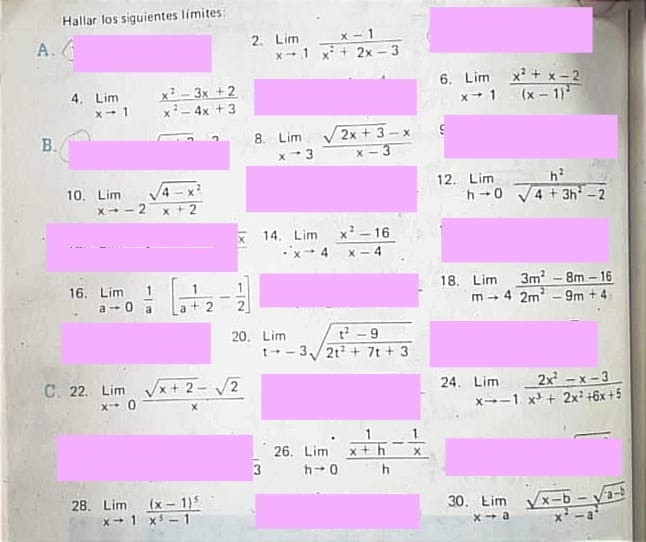 Hallar los siguientes límites:
A.
2. Lim x→1 (x − 1)/(x² + 2x − 3)
4. Lim x→1 (x² − 3x + 2)/(x² − 4x + 3)
6. Lim x→1 (x² + x − 2)/(x − 1)²
B.
8. Lim x→3 (√(2x + 3) − x)/(x − 3)
10. Lim x→−2 √(4 − x²)/(x + 2)
12. Lim h→0 h²/(√(4 + 3h²) − 2)
14. Lim x→4 (x² − 16)/(x − 4)
16. Lim a→0 1/a [1/(a + 2) − 1/2]
18. Lim m→4 (3m² − 8m − 16)/(2m² − 9m + 4)
20. Lim t→−3 √((t² − 9)/(2t² + 7t + 3))
C. 22. Lim x→0 (√(x + 2) − √2)/x
24. Lim x→−1 (2x² − x − 3)/(x³ + 2x² + 6x + 5)
3
26. Lim h→0 (1/(x + h) − 1/x)/h
28. Lim x→1 (x − 1)⁵/(x⁵ − 1)
30. Lim x→a (√(x−b) − √(a−b))/(x² − a²)